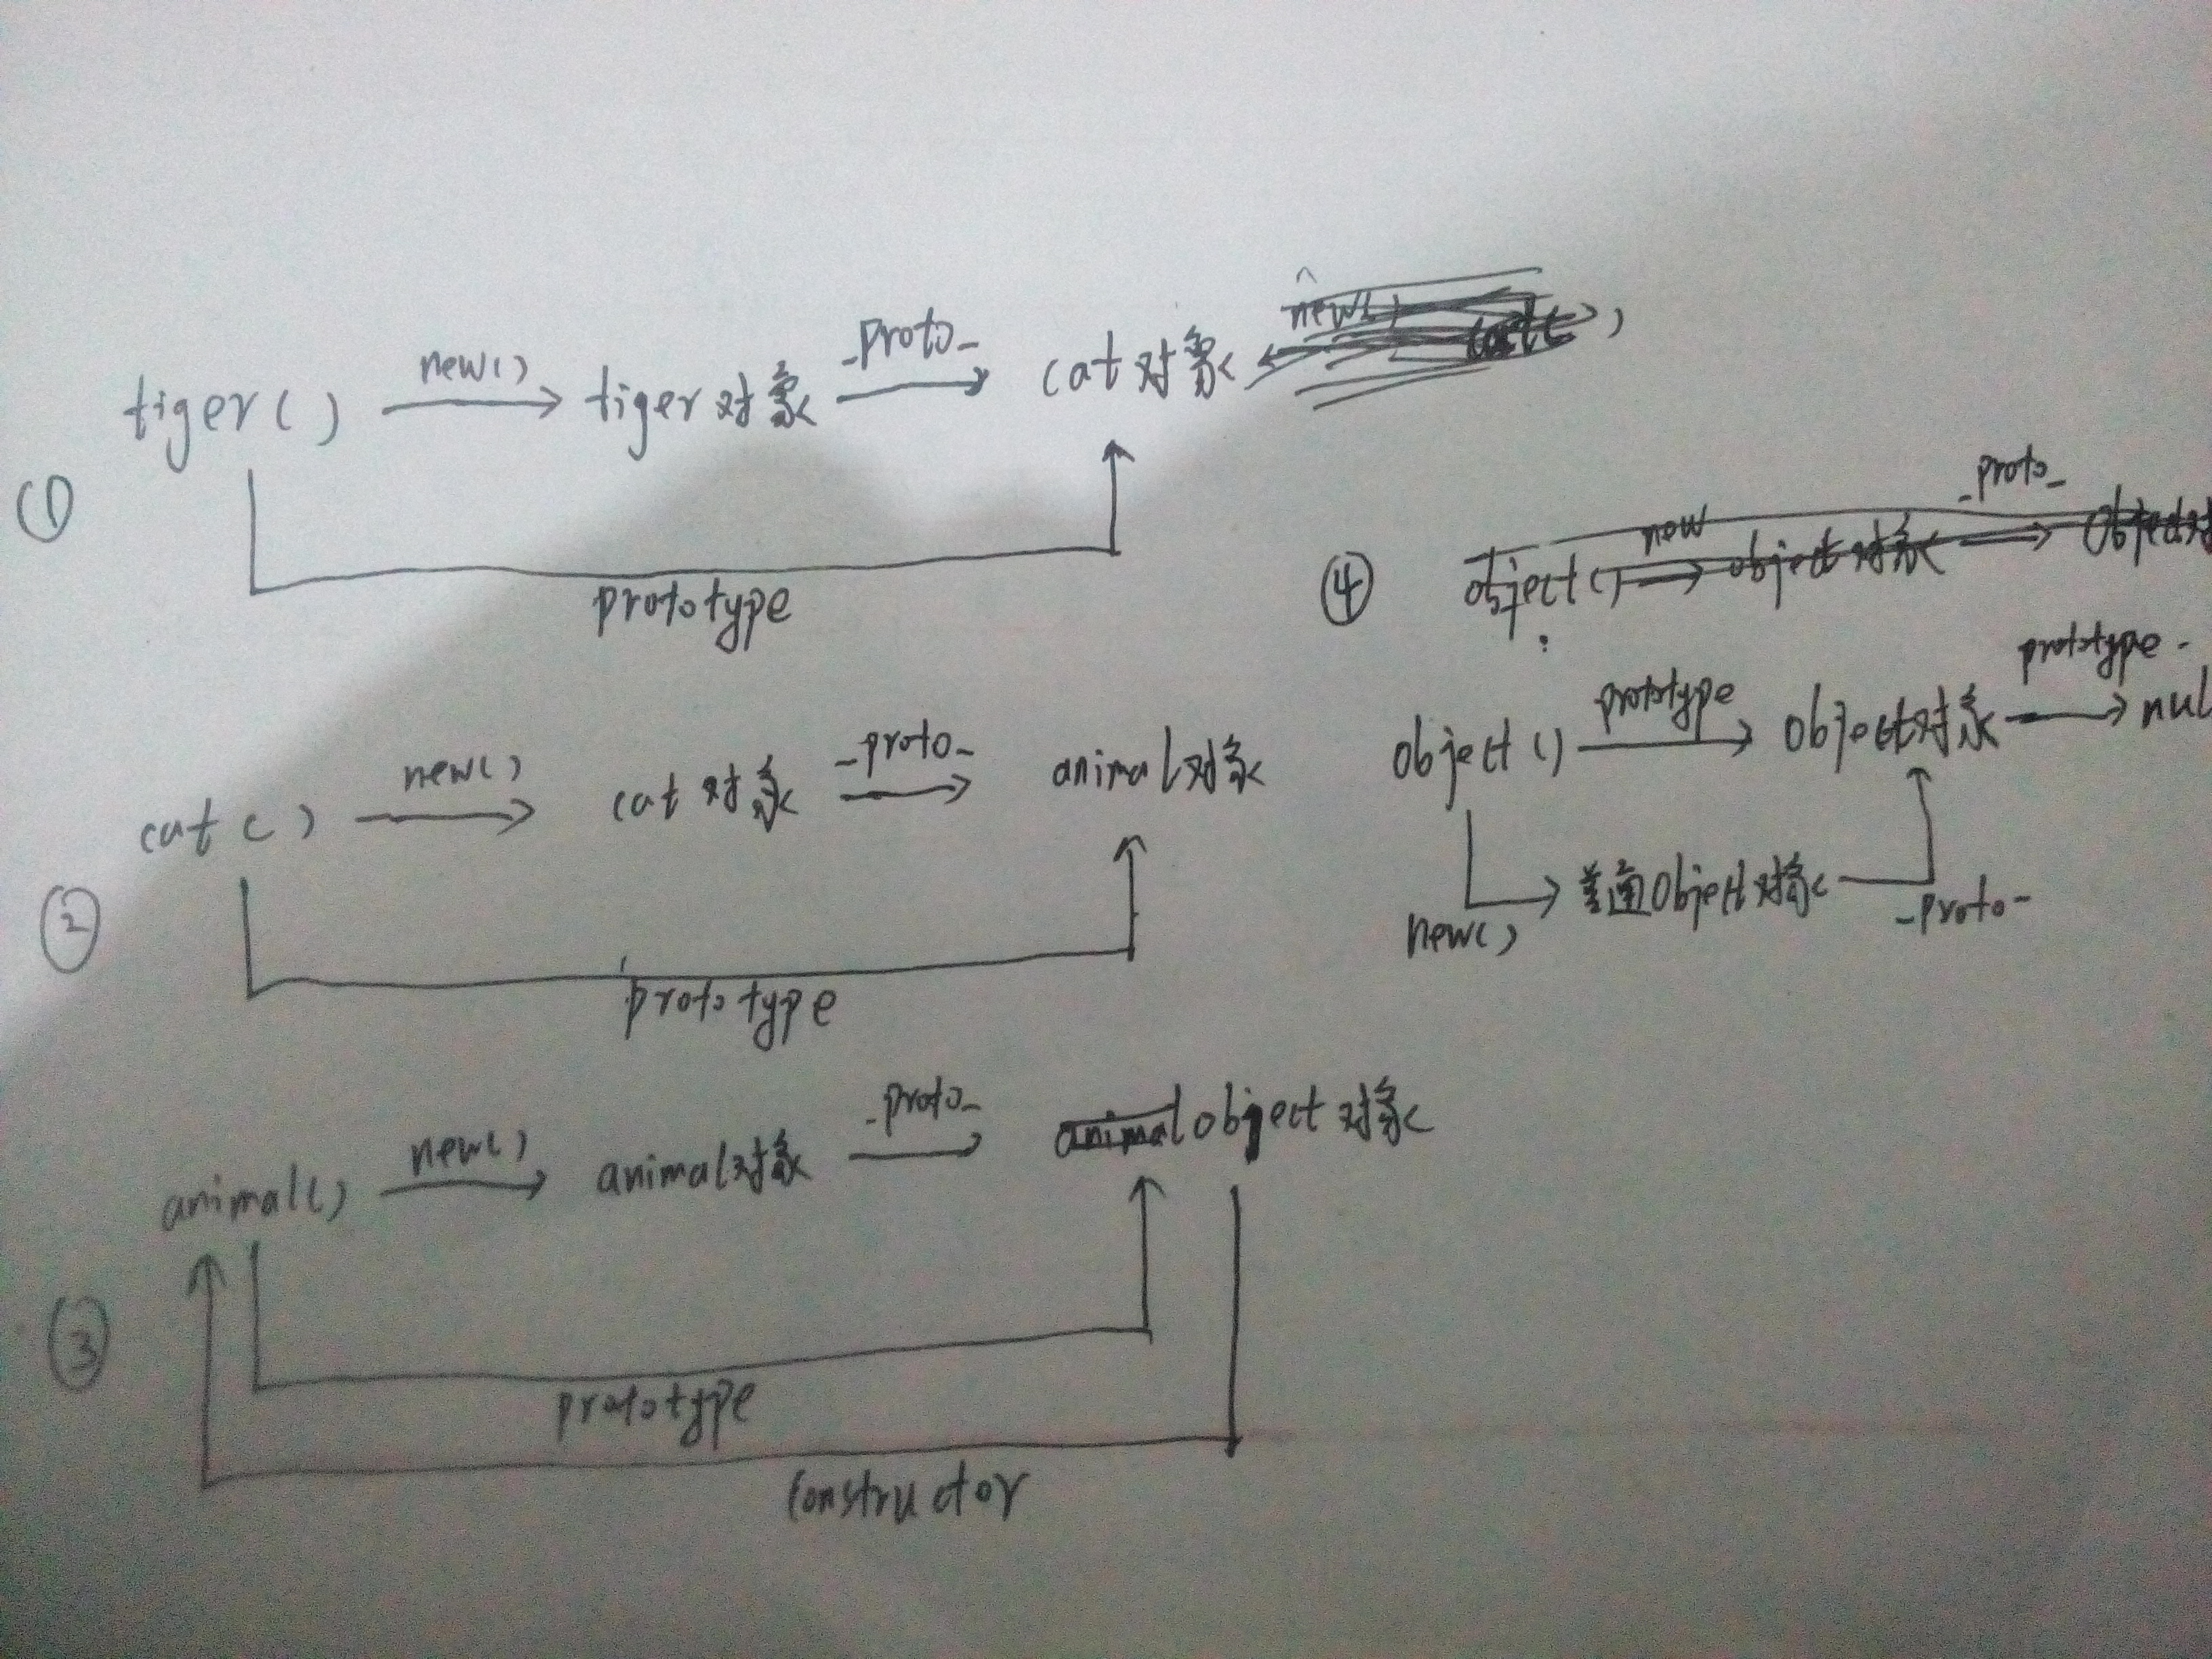 new() cat()
new() _proto_
tiger() tiger对象 cat对象
①
prototype
new() _proto_
cat() cat对象 animal对象
②
prototype
new() _proto_
animal() animal对象 animal object对象
③
prototype
constructor
new _proto_
④ object() object对象 Object对
prototype prototype
object() Object对象 nul
普通Object对象
new() _proto_